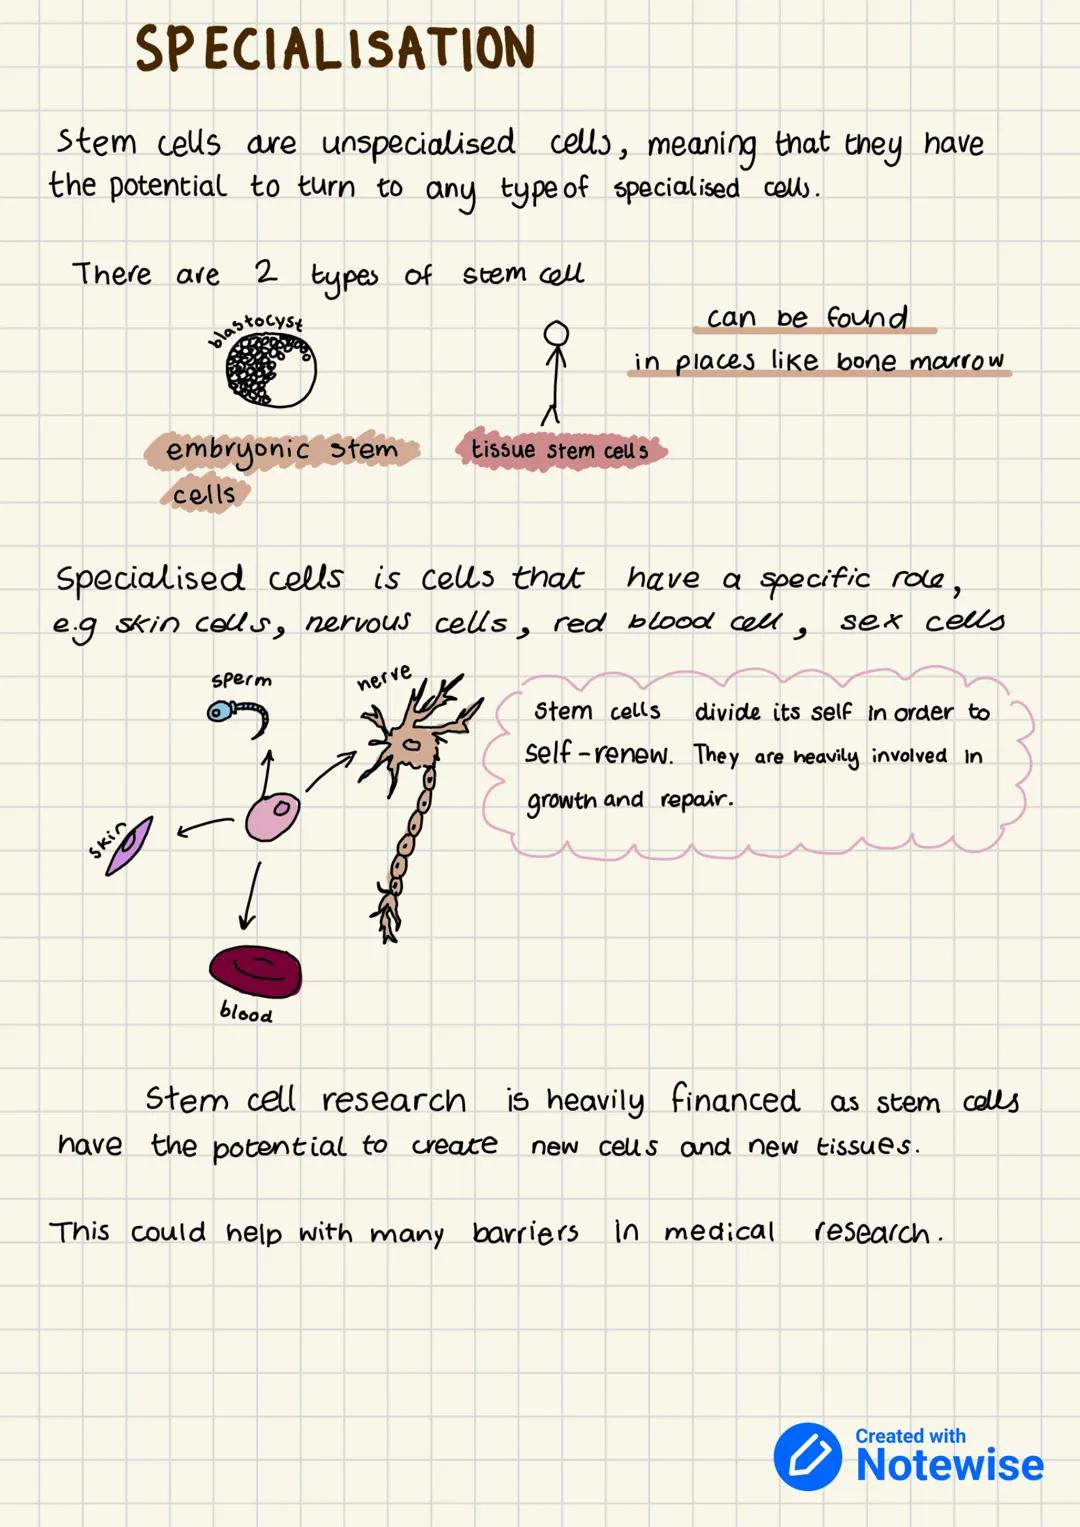 SPECIALISATION
Stem cells are unspecialised cells, meaning that they have
the potential to turn to any type of specialised cells.
There are 2 types of stem cell
blastocyst
can be found
in places like bone marrow
embryonic stem
cells
tissue stem cells
Specialised cells is cells that have a specific role,
e.g skin cells, nervous cells, red blood cell, sex cells
sperm
nerve
skin
blood
Stem cells divide its self in order to
self-renew. They are heavily involved in
growth and repair.
Stem cell research is heavily financed as stem cells
have the potential to create new cells and new tissues.
This could help with many barriers in medical research.
Created with
Notewise